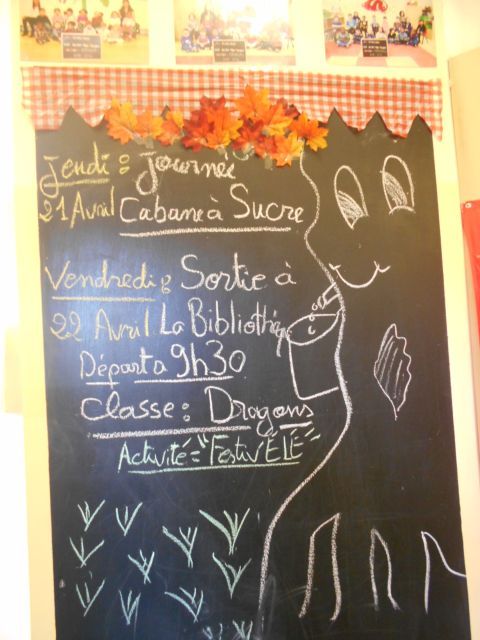 Jeudi : journée
21 Avril Cabane à Sucre
Vendredi : Sortie à
22 Avril La Bibliothéq
Départ a 9h30
Classe : Dragons
Activité = "Festiv'ÉLÉ"